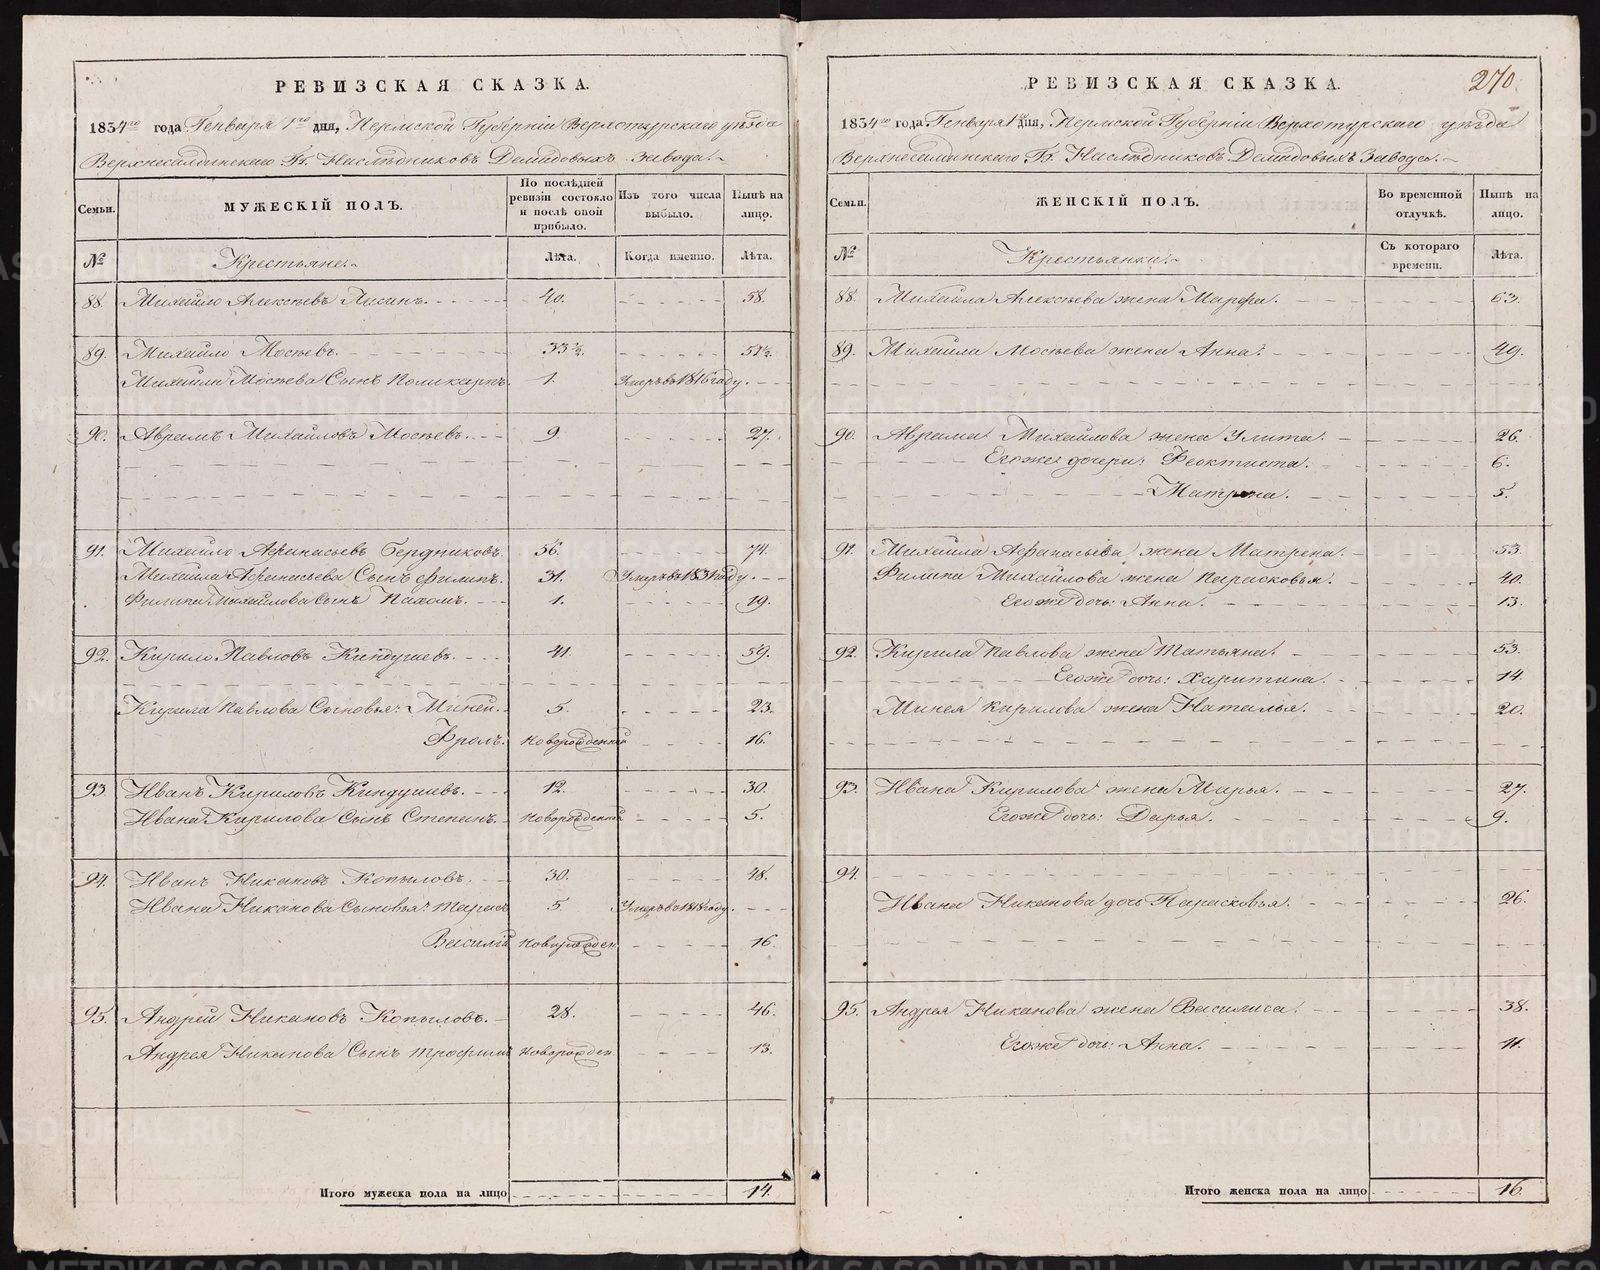 РЕВИЗСКАЯ СКАЗКА.
1834го года Генваря 1го дня, Пермской Губерніи Верхотурскаго уѣзда
Верхнесалдинскаго Гг. Наслѣдниковъ Демидовыхъ завода.
Семьи.
МУЖЕСКІЙ ПОЛЪ.
По послѣдней ревизіи состояло и послѣ оной прибыло.
Изъ того числа выбыло.
Нынѣ на лицо.
№
Крестьяне.
Лѣта.
Когда именно.
Лѣта.
88. Михайло Алексѣевъ 40. 58.
89. Михайло Мосѣевъ. 33½. 51½.
Михайла Мосѣева Сынъ Поликарпъ. 1. Умеръ въ 1816 году.
90. Аврамъ Михайловъ Мосѣевъ. 9. 27.
91. Михайло Афанасьевъ Бердниковъ. 56. 74.
Михайла Афанасьева Сынъ Филипъ. 31. Умеръ въ 1831 году.
Филипа Михайлова Сынъ Пахомъ. 1. 19.
92. Кирило Павловъ Киндушевъ. 41. 59.
Кирила Павлова Сыновья: Миней. 5. 23.
Фролъ. Новорожденный 16.
93. Иванъ Кириловъ Киндушевъ. 12. 30.
Ивана Кирилова Сынъ Степанъ. Новорожденный 5.
94. Иванъ Никоновъ Копыловъ. 30. 48.
Ивана Никонова Сыновья: 5. Умеръ въ 1818 году.
Василій Новорожден. 16.
95. Андрей Никоновъ Копыловъ. 28. 46.
Андрея Никонова Сынъ Трофимъ Новорожден. 13.
Итого мужеска пола на лицо 14.
270.
РЕВИЗСКАЯ СКАЗКА.
1834го года Генваря 1 дня, Пермской Губерніи Верхотурскаго уѣзда
Верхнесалдинскаго Гг. Наслѣдниковъ Демидовыхъ завода.
Семьи.
ЖЕНСКІЙ ПОЛЪ.
Во временной отлучкѣ.
Нынѣ на лицо.
№
Крестьянки.
Съ котораго времени.
Лѣта.
88. Михайла Алексѣева жена Марфа. 63.
89. Михайла Мосѣева жена Анна. 49.
90. Аврама Михайлова жена Улита. 26.
Егоже дочери: Феоктиста. 6.
Матрена. 5.
91. Михайла Афанасьева жена Матрена. 53.
Филипа Михайлова жена Парасковья. 40.
Егоже дочь: Анна. 13.
92. Кирила Павлова жена Татьяна. 53.
Егоже дочь: Харитина. 14.
Минея Кирилова жена Наталья. 20.
93. Ивана Кирилова жена Марья. 27.
Егоже дочь: Дарья. 9.
94.
Ивана Никонова дочь Парасковья. 26.
95. Андрея Никонова жена Василиса. 38.
Егоже дочь: Анна. 11.
Итого женска пола на лицо 16.
METRIKI.GASO-URAL.RU